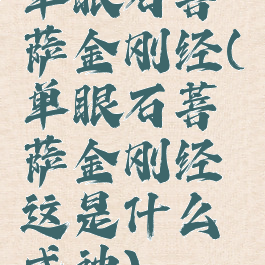 单眼石菩
萨金刚经(
单眼石菩
萨金刚经
这是什么
成神)